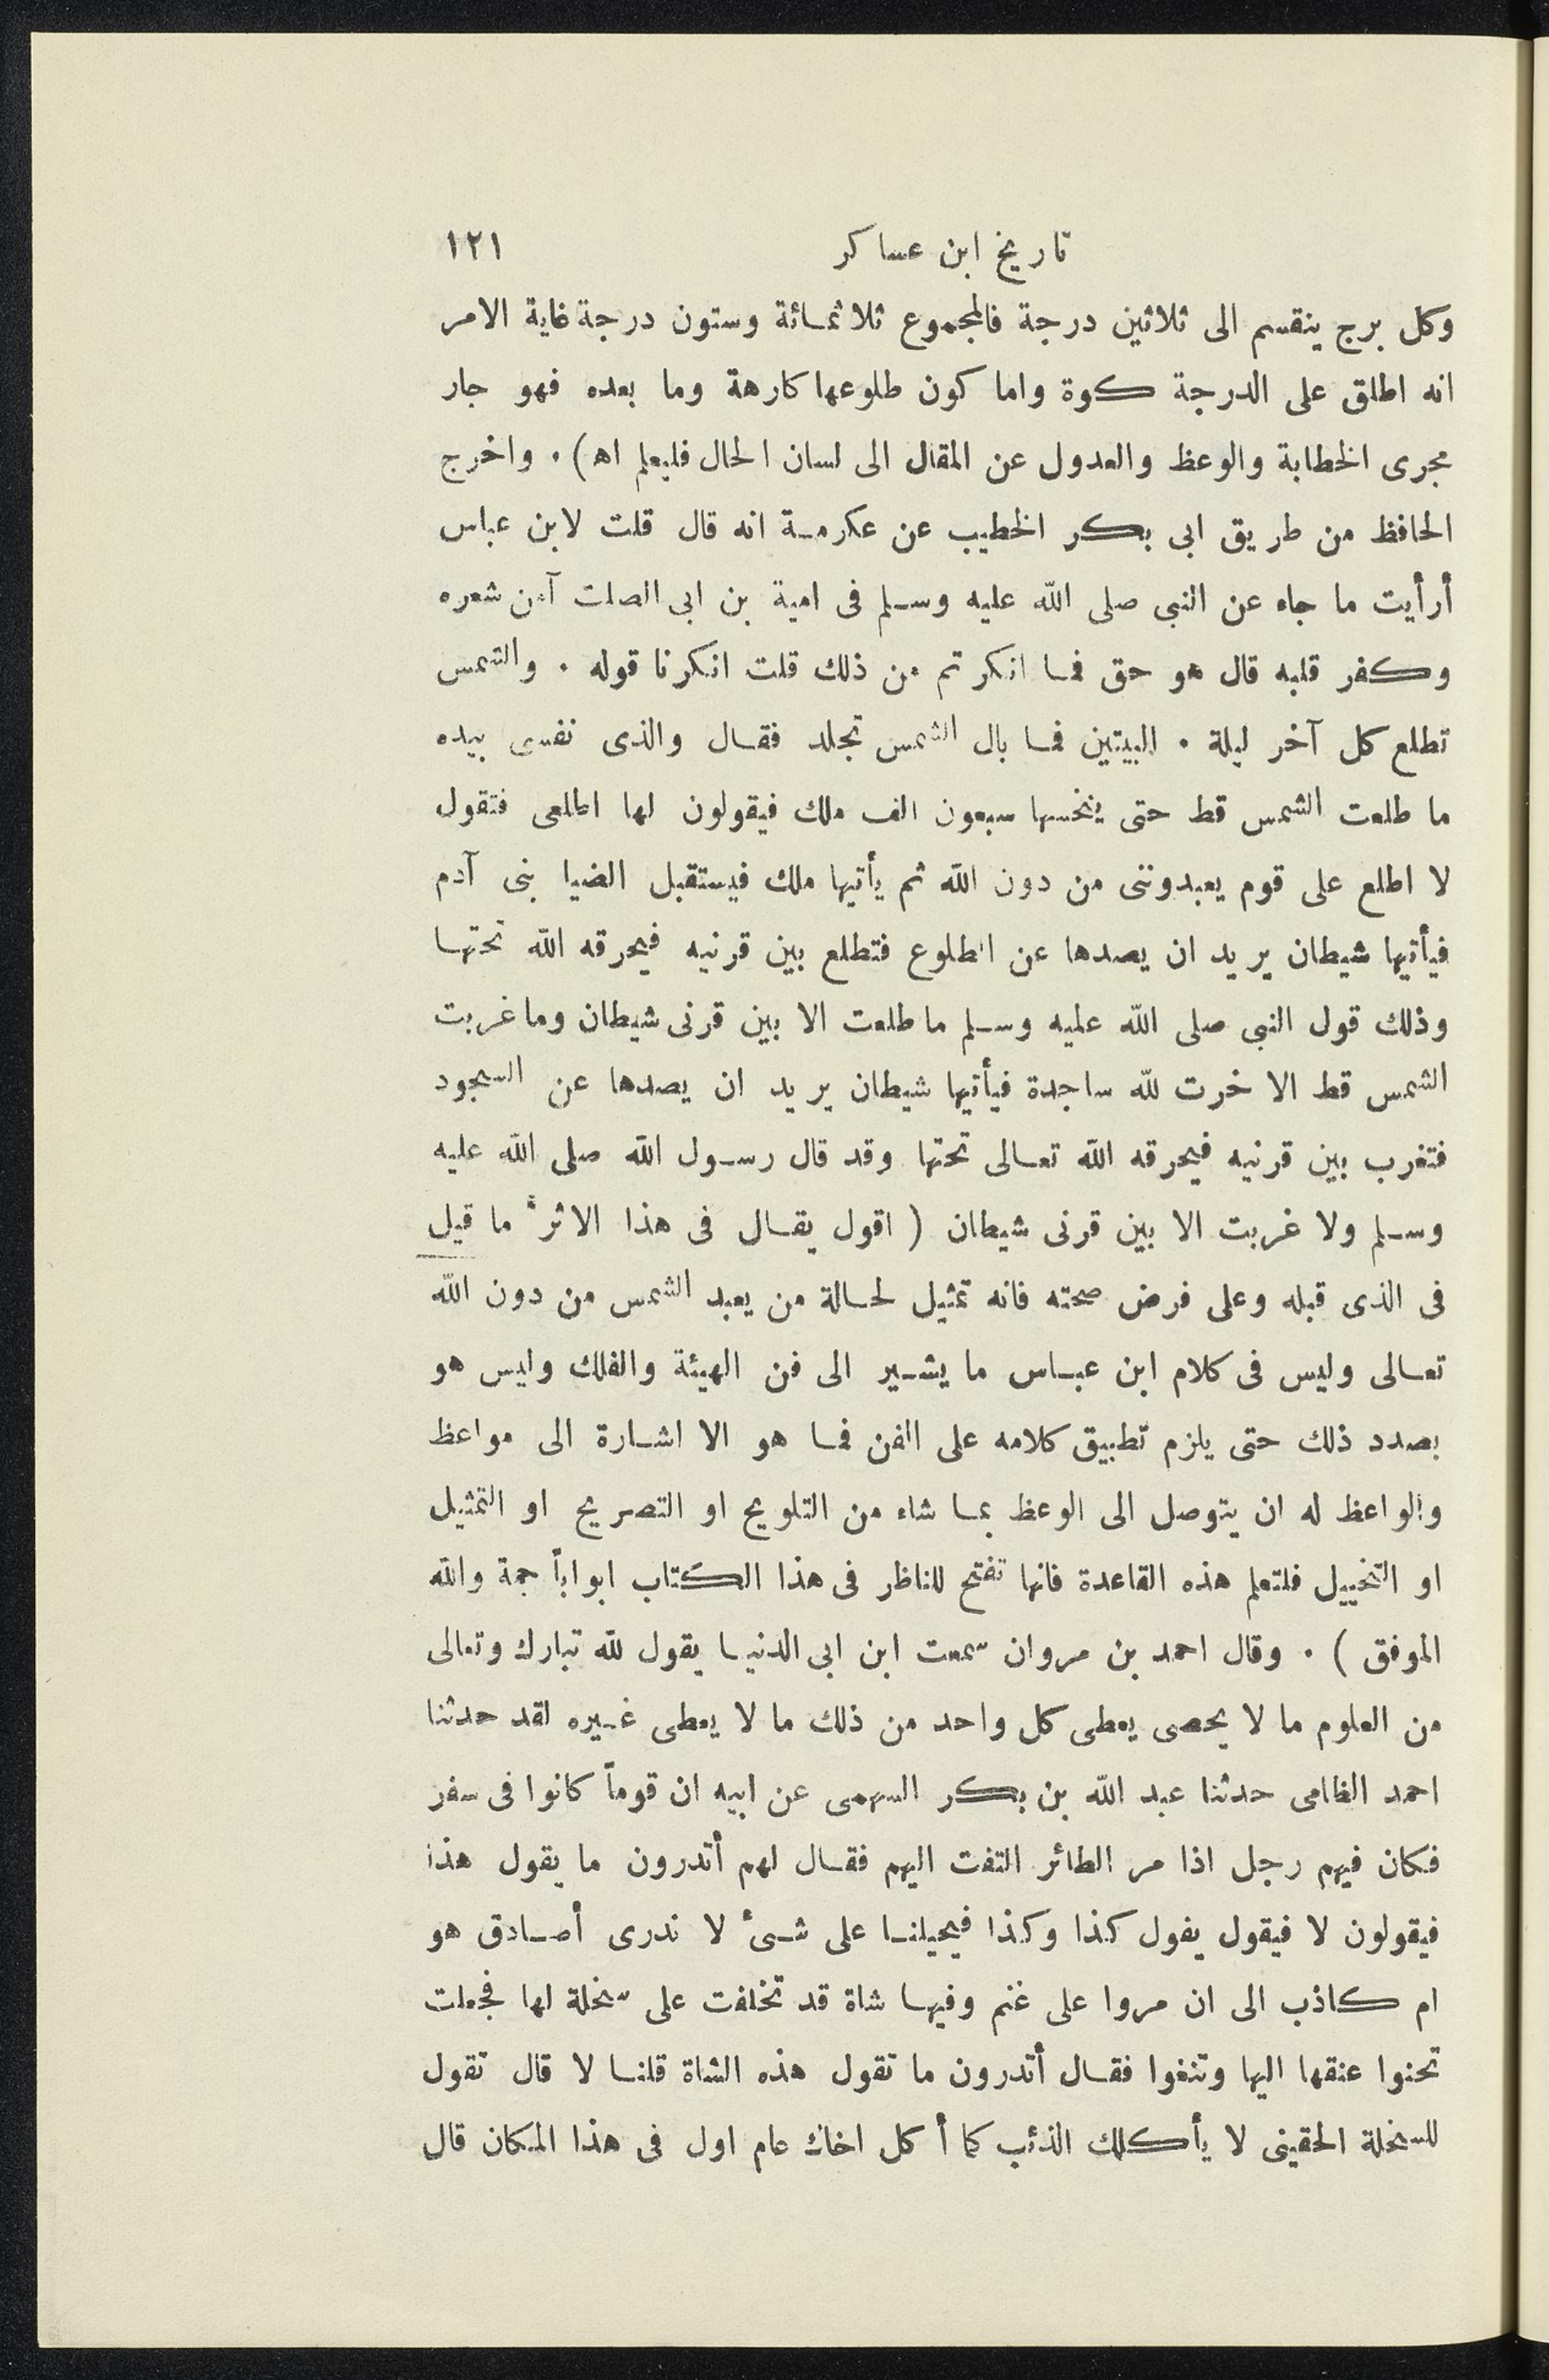 تاريخ ابن عساكر ١٢١
وكل برج ينقسم الى ثلاثين درجة فالمجموع ثلاثمائة وستون درجة غاية الامر
انه اطلق على الدرجة كوة واما كون طلوعها كارهة وما بعده فهو جار
مجرى الخطابة والوعظ والعدول عن المقال الى لسان الحال فليعلم اه) . واخرج
الحافظ من طريق ابى بكر الخطيب عن عكرمة انه قال قلت لابن عباس
أرأيت ما جاء عن النبى صلى الله عليه وسلم فى امية بن ابى الصلت آمن شعره
وكفر قلبه قال هو حق فما انكرتم من ذلك قلت انكرنا قوله . والشمس
تطلع كل آخر ليلة . البيتين فما بال الشمس تجلد فقال والذى نفسى بيده
ما طلعت الشمس قط حتى ينخسها سبعون الف ملك فيقولون لها اطلعى فتقول
لا اطلع على قوم يعبدوننى من دون الله ثم يأتيها ملك فيستقبل الضيا بنى آدم
فيأتيها شيطان يريد ان يصدها عن الطلوع فتطلع بين قرنيه فيحرقه الله تحتها
وذلك قول النبى صلى الله عليه وسلم ما طلعت الا بين قرنى شيطان وما غربت
الشمس قط الا خرت لله ساجدة فيأتيها شيطان يريد ان يصدها عن السجود
فتغرب بين قرنيه فيحرقه الله تعالى تحتها وقد قال رسول الله صلى الله عليه
وسلم ولا غربت الا بين قرنى شيطان ( اقول يقال فى هذا الاثر ما قيل
فى الذى قبله وعلى فرض صحته فانه تمثيل لحالة من يعبد الشمس من دون الله
تعالى وليس فى كلام ابن عباس ما يشير الى فن الهيئة والفلك وليس هو
بصدد ذلك حتى يلزم تطبيق كلامه على الفن فما هو الا اشارة الى مواعظ
والواعظ له ان يتوصل الى الوعظ بما شاء من التلويح او التصريح او التمثيل
او التخييل فلتعلم هذه القاعدة فانها تفتح للناظر فى هذا الكتاب ابواباً جمة والله
الموفق ) . وقال احمد بن مروان سمعت ابن ابى الدنيا يقول لله تبارك وتعالى
من العلوم ما لا يحصى يعطى كل واحد من ذلك ما لا يعطى غيره لقد حدثنا
احمد الظامى حدثنا عبد الله بن بكر السهمى عن ابيه ان قوماً كانوا فى سفر
فكان فيهم رجل اذا مر الطائر التفت اليهم فقال لهم أتدرون ما يقول هذا
فيقولون لا فيقول يقول كذا وكذا فيحيلنا على شئ لا ندرى أصادق هو
ام كاذب الى ان مروا على غنم وفيها شاة قد تخلفت على سخلة لها فجعلت
تحنوا عنقها اليها وتثغوا فقال أتدرون ما تقول هذه الشاة قلنا لا قال تقول
للسخلة الحقينى لا يأكلك الذئب كما أكل اخاك عام اول فى هذا المكان قال